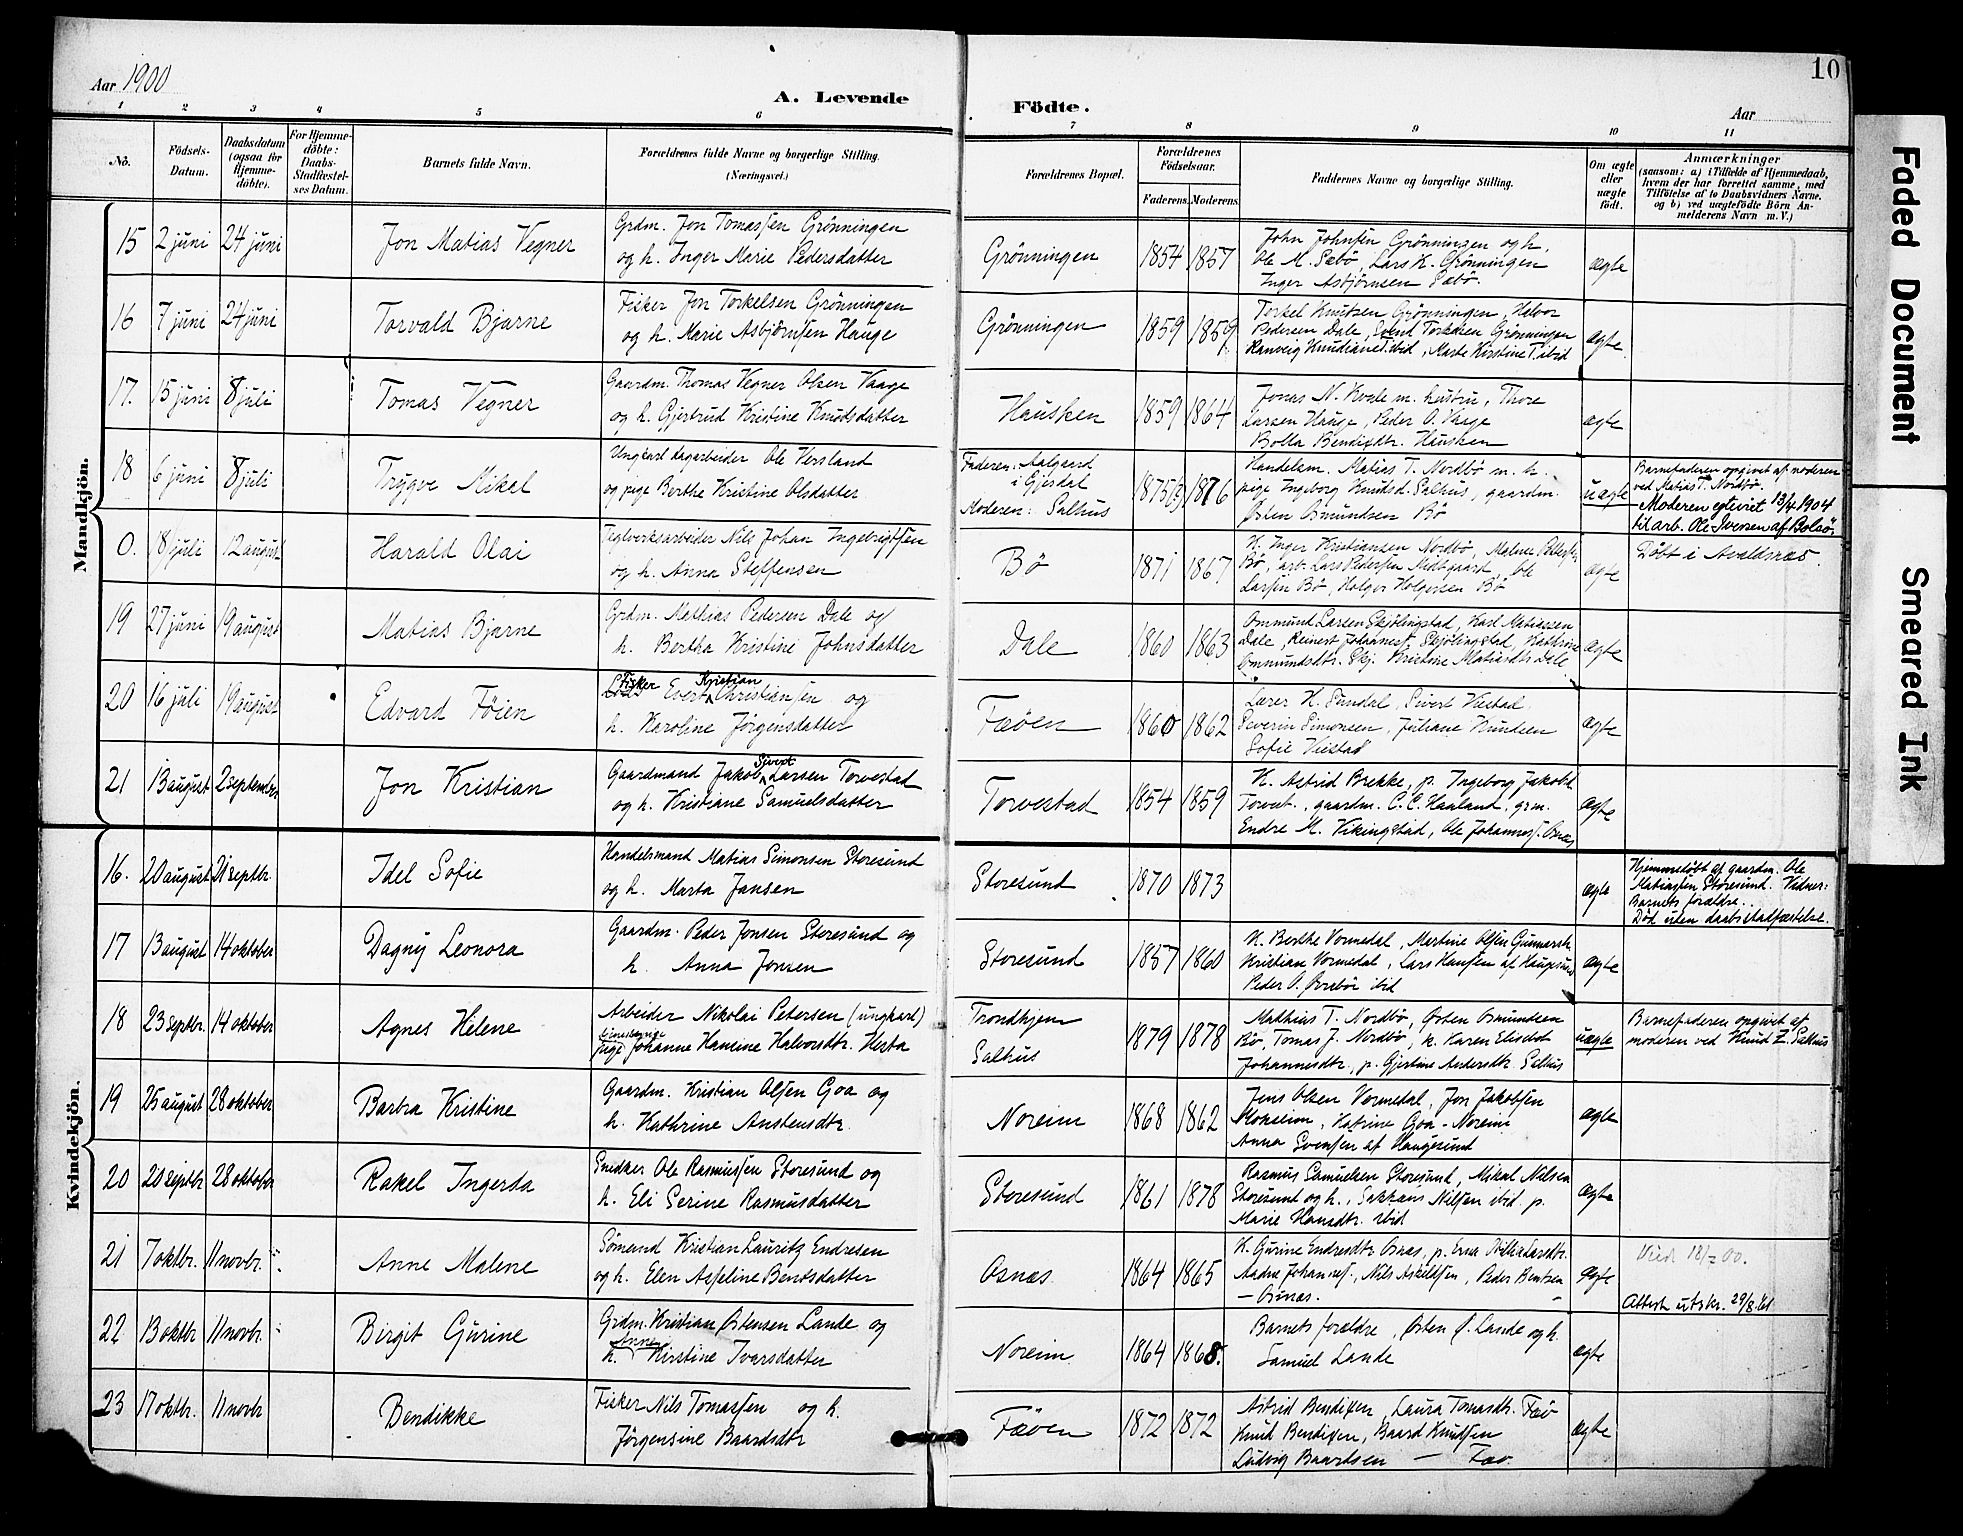 Aar 1900
A. Levende
Födte.
Aar
10
1 2 3 4 5 6 7 8 9 10 11
No.
Födsels-
Datum.
Daabsdatum
(ogsaa for
Hjemme-
döbte).
For Hjemme-
döbte:
Daabs-
Stadfæstel-
ses Datum.
Barnets fulde Navn.
Forældrenes fulde Navne og borgerlige Stilling.
(Næringsvei.)
Forældrenes Bopæl.
Forældrenes
Födselsaar.
Faderens. Moderens.
Faddernes Navne og borgerlige Stilling.
Om ægte
eller
uægte
födt.
Anmærkninger
(saasom: a) i Tilfælde af Hjemmedaab,
hvem der har forrettet samme, med
Tilföielse af to Daabsvidners Navne,
og b) ved uægtefödte Börn An-
melderens Navn m. V.)
Mandkjön.
15 2 juni 24 juni Jon Matias Vegner
Grdm. Jon Tomassen Grönningen
og h. Inger Marie Pedersdatter
Grönningen 1854 1857
John Johnsen Grönningen og h.
Ole M. Sæbö, Lars K. Grönningen
Inger Asbjörnsen Sæbö.
ægte
16 7 juni 24 juni Torvald Bjarne
Fisker Jon Torkelsen Grönningen
og h. Marie Asbjörnsen Hauge
Grönningen 1859 1859
Torkel Knutsen Grönningen, Halvor
Pedersen Dale, Svend Torkelsen Grönningen
Ranveig Knudiane T. ibid, Marte Kirstine T. ibid
ægte
17. 15 juni 8 juli Tomas Vegner
Gaardm. Thomas Vegner Olsen Vaage
og h. Gjertrud Kristine Knudsdatter
Hausken 1859 1864
Jonas N. Kvale m. hustru, Thore
Larsen Hauge, Peder O. Vaage
Bolla Bendixdtr. Hausken
ægte
18 6 juni 8 juli Trygve Mikal
Ungkarl dagarbeider Ole Versland
og pige Berthe Kristine Olsdatter
Faderen: Aalgaard
i Gjesdal
Moderen: Salhus
1875/3 1876
Handelsm. Matias T. Nordbö m. h.
pige Ingeborg Knudsd. Salhus, gaardm.
Östen Osmundsen Bö
uægte
Barnefaderen opgivet af moderen
ved Matias T. Nordbö.
Moderen egteviet 13/4 1904
til arb. Ole Iversen af Bolsö.
0. 8 juli 12 august Harald Olai
Teglverksarbeider Nils Johan Ingebrigtsen
og h. Anna Steffensen
Bö 1871 1867
K. Inger Kristiansen Nordbö, Malene
Bö, arb. Lars Pedersen Nedtgaart, Ole
Larsen Bö, Holger Holgersen Bö
ægte
Döbt i Avaldsnæs.
19 27 juni 19 august Matias Bjarne
Grdm. Mathias Pedersen Dale og
h. Bertha Kristine Johnsdatter
Dale 1860 1863
Ommund Larsen Skjölingstad, Karl Matiassen
Dale, Reinert Johannesf. Skjölingstad, Kathrine
Ommundsdtr. Skj. Kristine Matiasdtr. Dale
ægte
20 16 juli 19 august Edvard Föien
Fisker Evert Kristian Christiansen og
h. Karoline Jörgensdatter
Fæöen 1860 1862
Lærer K. Sundal, Sivert Viestad,
Severin Simonsen, Juliane Knutsen
Sofie Viestad
ægte
21 13 august 2 september Jon Kristian
Gaardmand Jakob Sivert Larsen Torvestad
og h. Kristiane Samuelsdatter
Torvestad 1854 1859
K. Astrid Brekke, p. Ingeborg Jakobd.
Torvest., gaardm. C. C. Haaland, grm.
Endre M. Vikingstad, Ole Johannesf. Osnæs
ægte
Kvindekjön.
16. 20 august 21 septbr. Idel Sofie
Handelsmand Matias Simonsen Storesund
og h. Marta Jansen
Storesund 1870 1873
ægte
Hjemmedöbt af gaardm. Ole
Matiassen Storesund. Vidner:
Barnets forældre.
Död uten daabsstadfæstelse.
17 13 august 14 oktober Dagny Leonora
Gaardm. Peder Jonsen Storesund og
h. Anna Jonsen
Storesund 1857 1860
K. Berthe Vormedal, Martine Olsen
Kristian Vormedal, Lars Hansen af Haugesund
Peder O. Örebör ibid
ægte
18 23 septbr. 14 oktober Agnes Helene
Arbeider Nikolai Petersen (ungkarl)
pige Johanne Hansine Halvorsdtr. Versta
Trondhjem
Salhus
1879 1878
Mathias T. Nordbö, Östen Osmundsen
Bö, Tomas J. Nordbö, k. Karen Elisebet
Johannesdtr., p. Gjertine Andersdtr. Salhus
uægte
Barnefaderen opgivet af
moderen ved Knud L. Salhus
19 25 august 28 oktober Barbra Kristine
Gaardm. Kristian Olsen Goa og
h. Kathrine Anstensdtr.
Noreim 1868 1862
Jens Olsen Vormedal, Jon Jakobsen
Moksheim, Katrine Goa - Noreim
Anna Svensen af Haugesund
ægte
20 20 septbr 28 oktober Rakel Ingerda
Snedker Ole Rasmussen Storesund og
h. Eli Serine Rasmusdatter
Storesund 1861 1878
Rasmus Samuelsen Storesund, Mikal Nilsen
Storesund og h., Sakkarias Nilsen ibid. p.
Marie Hansdtr. ibid
ægte
21 7 oktbr. 11 novbr. Anne Malene
Sömand Kristian Lauritz Endresen
og h. Elen Asseline Bentsdatter
Osnæs 1864 1865
K. Gurine Endresdtr Osnæs, p. Erna
Andreas Johannesf., Nils Askildsen, Peder Bentsen
— Osnæs.
ægte
Attest utskr. 29/8.61
22 13 oktbr 11 novbr. Birgit Gurine
Grdm. Kristian Östensen Lande og
h. Anne Kirstine Ivarsdatter
Noreim 1864 1868.
Barnets forældre, Östen J. Lande og h.
Samuel Lande
ægte
23 17 oktbr. 11 novbr Bendikke
Fisker Nils Tomassen og h.
Jörgensine Baardsdtr
Fæöen 1872 1872
Astrid Bendixen, Laura Tomasdtr. Fæö
Knud Bendixen, Baard Knudsen
Ludvig Baardsen — Fæö
ægte
Faded Document
Smeared Ink